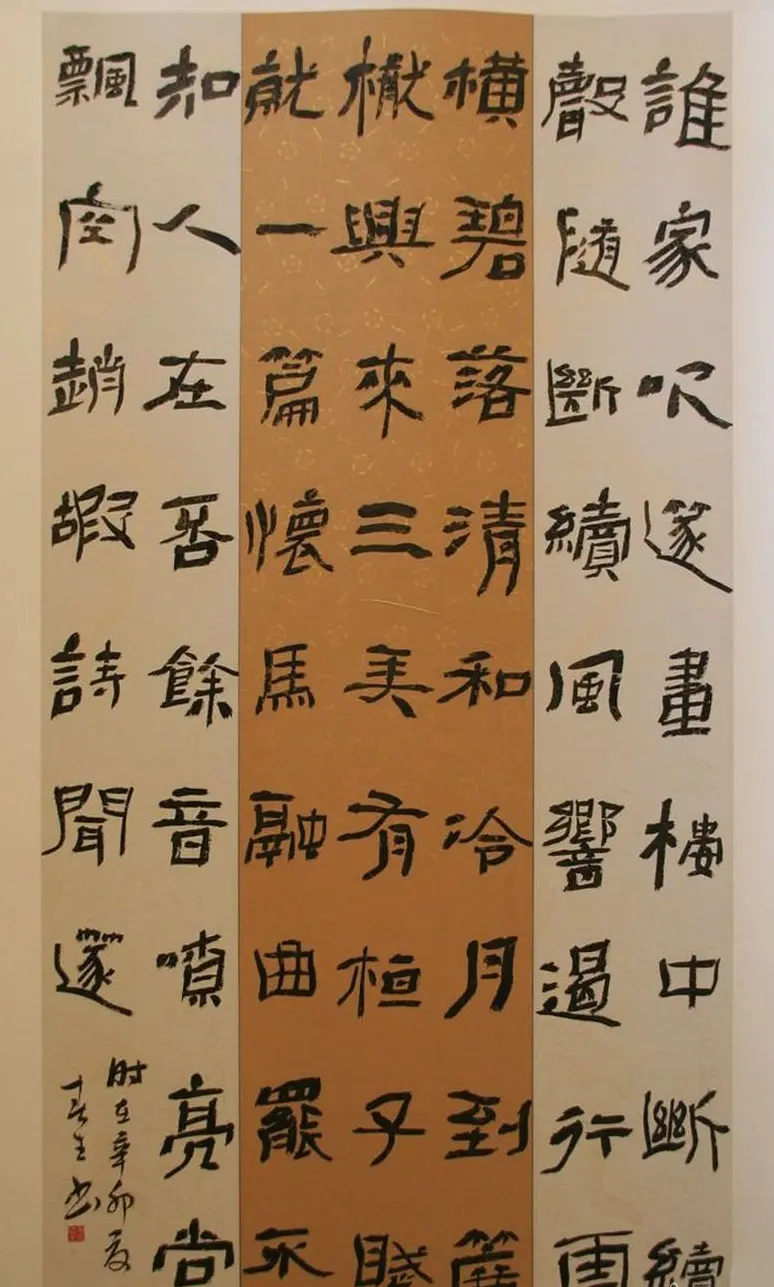 誰家吹遂畫樓中斷續
聲隨斷續風響遏行雲
横碧落清和冷月到簾
櫳興來三弄有桓子賦
就一篇懷馬融曲罷不
知人在否餘音嘹亮尚
飄空趙嘏詩聞篴
时在辛卯夏
春生书